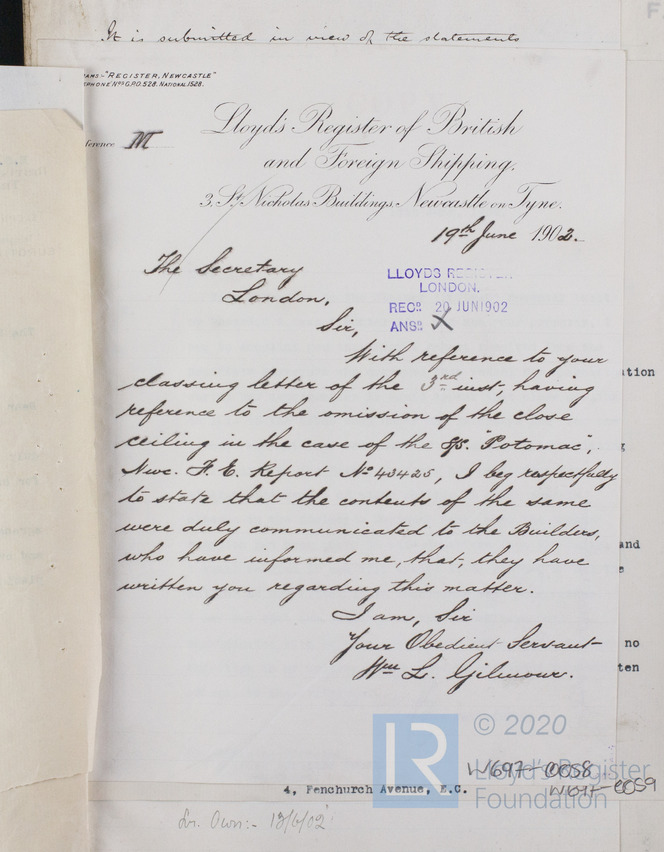 It is submitted in view of the statements
F
"REGISTER, NEWCASTLE"
PHONE Nos G.P.O. 528. NATIONAL 1528.
Lloyd's Register of British
and Foreign Shipping.
ference M
3, St Nicholas Buildings, Newcastle on Tyne.
19th June 1902.
The Secretary
London.
LLOYDS REGISTER
LONDON.
RECD 20 JUN 1902
ANSD X
Sir,
With reference to your
classing letter of the 3rd inst, having
reference to the omission of the close
ceiling in the case of the S/S. "Potomac",
Nwc. F. E. Report No 43425, I beg respectfully
to state that the contents of the same
were duly communicated to the Builders,
who have informed me, that, they have
written you regarding this matter.
I am, Sir
Your Obedient Servant
Wm L. Gilmour.
ation
and
no
ten
© 2020
Lloyd's Register
Foundation
W697-0058
W697-0059
4, Fenchurch Avenue, E.C.
13/6/02